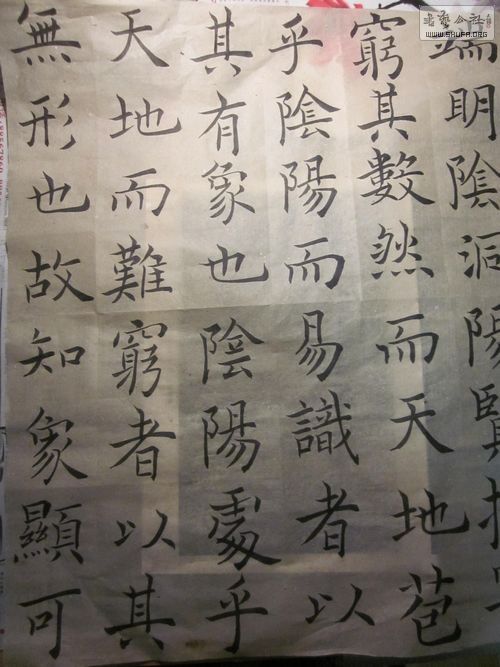 書藝公社
WWW.SHUFA.ORG
端明陰洞陽賢
窮其數然而天地苞
乎陰陽而易識者以
其有象也陰陽處乎
天地而難窮者以其
無形也故知象顯可